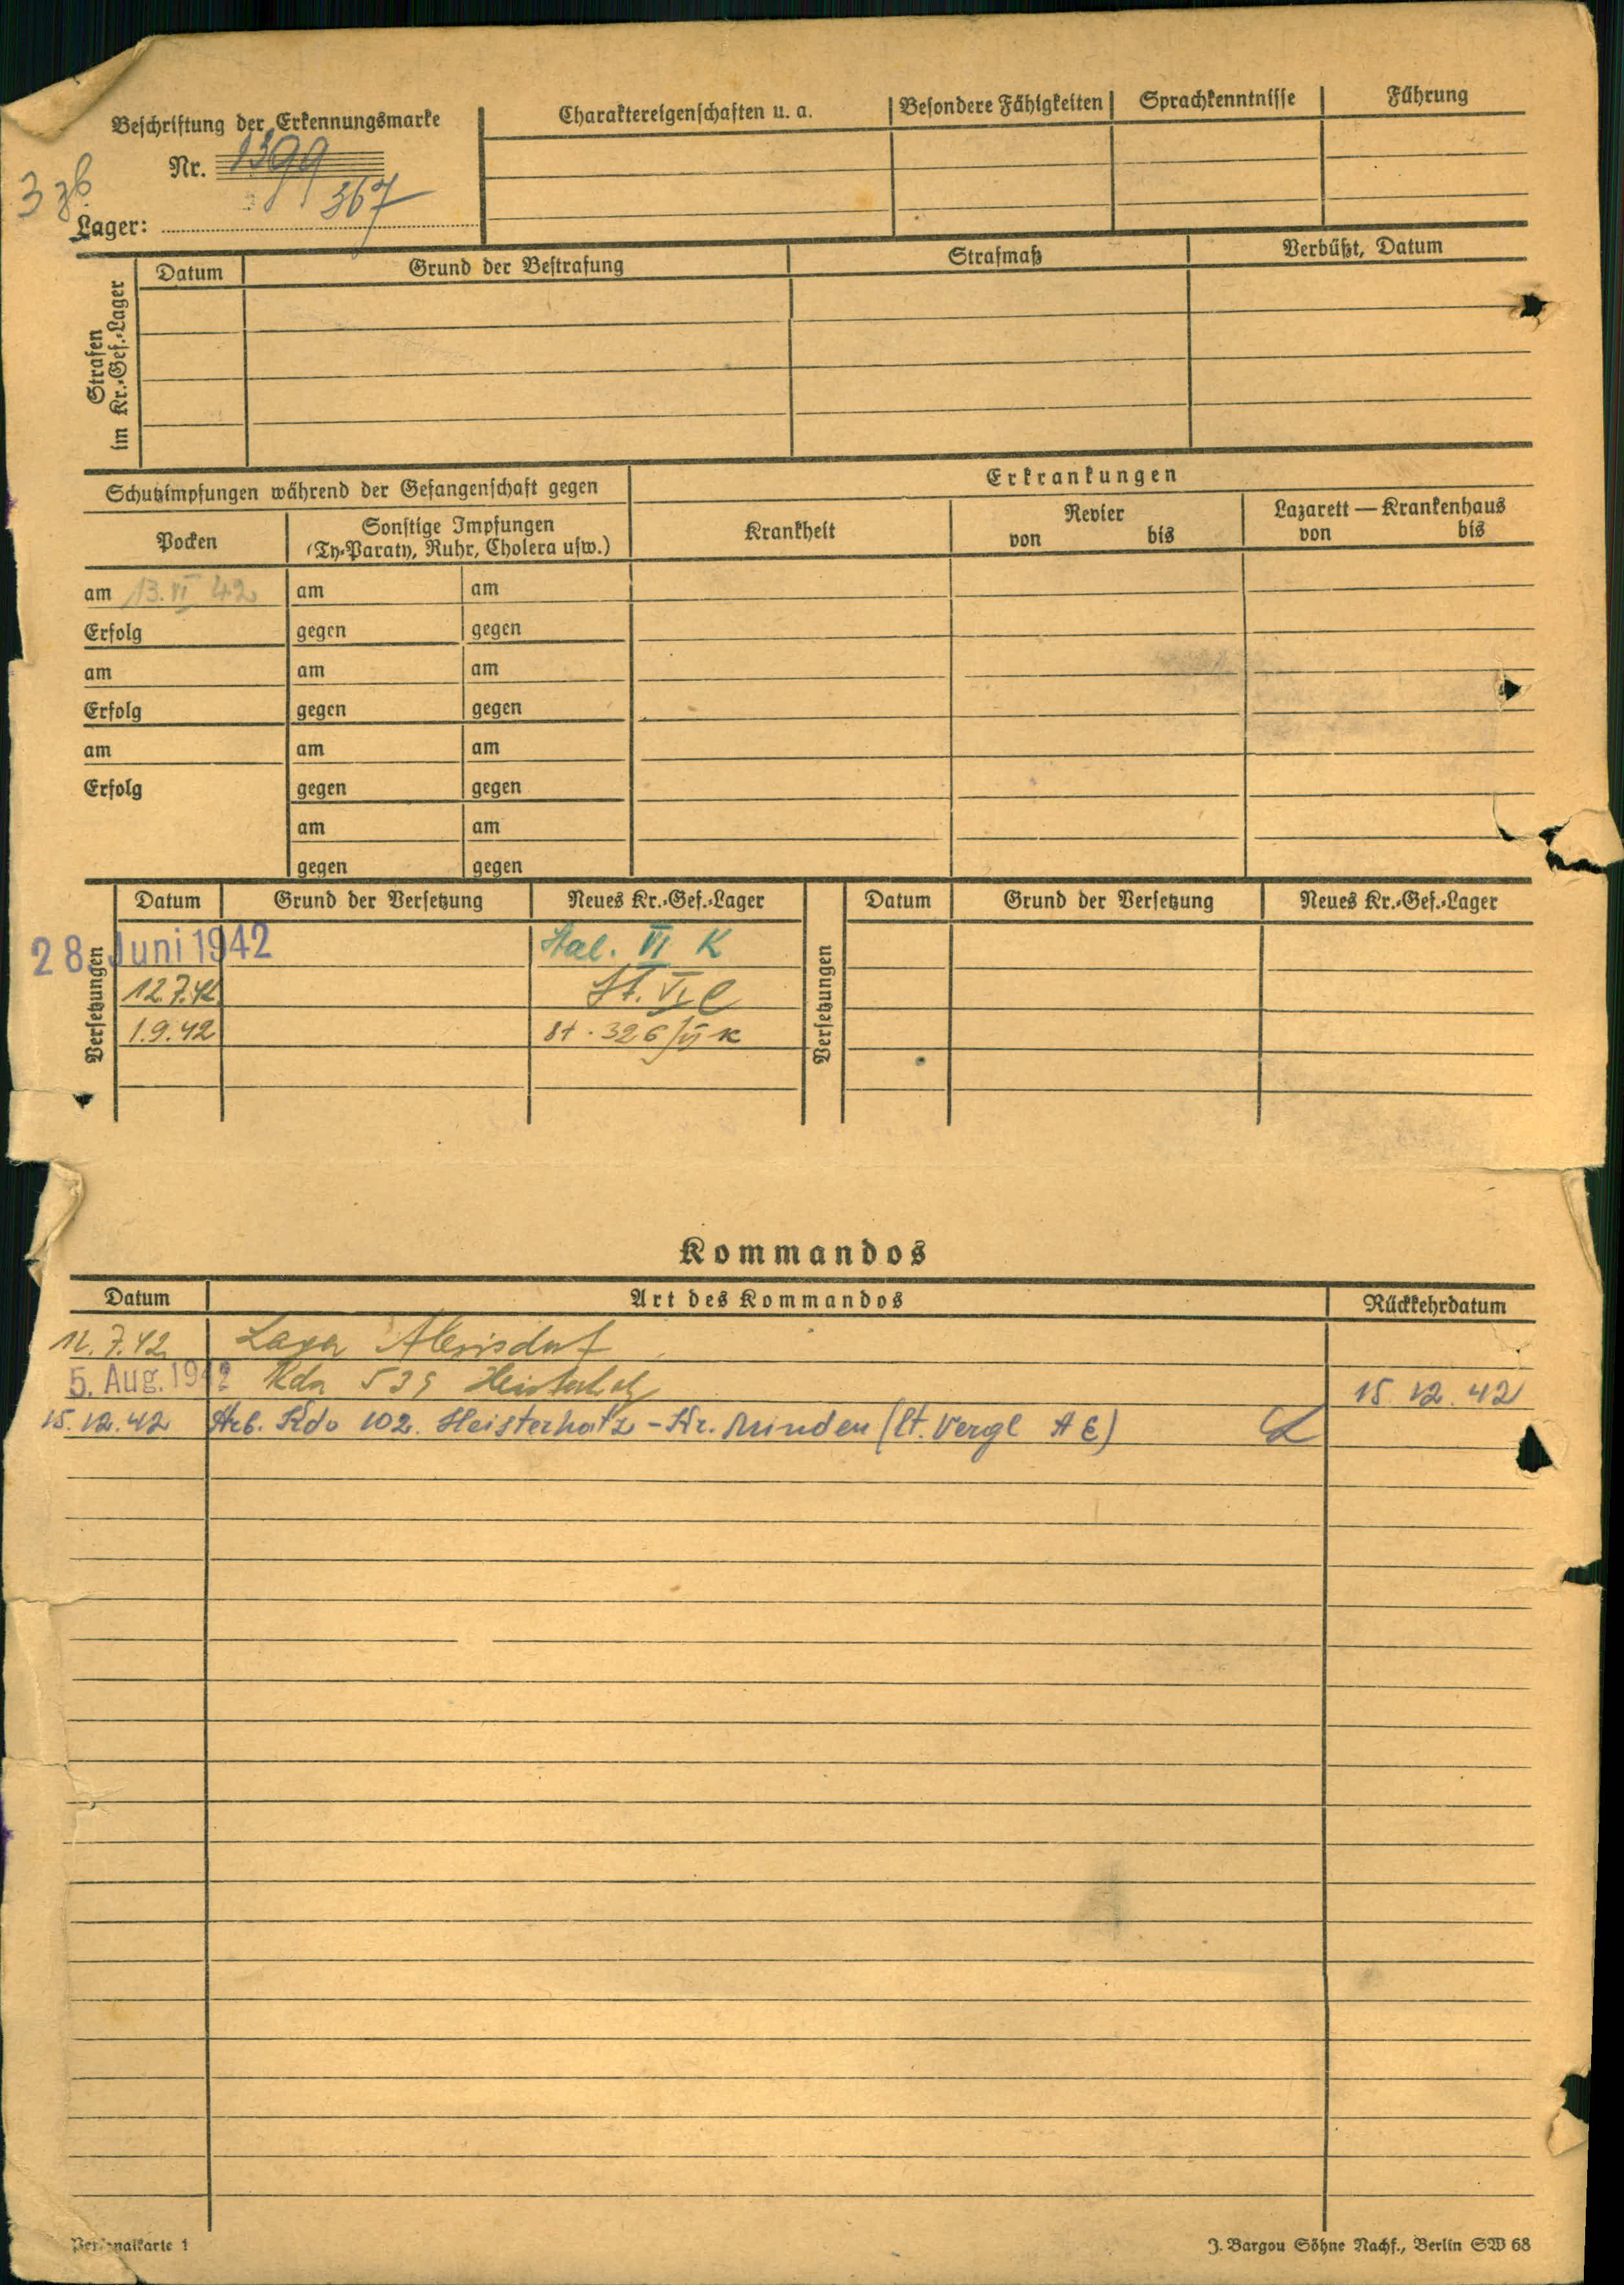 Beschriftung der Erkennungsmarke
Nr. 1399
367
Lager:
Charaktereigenschaften u. a.
Besondere Fähigkeiten
Sprachkenntnisse
Führung
Strafen im Kr.-Gef.-Lager
Datum
Grund der Bestrafung
Strafmaß
Verbüßt, Datum
Schutzimpfungen während der Gefangenschaft gegen
Erkrankungen
Pocken
Sonstige Impfungen
(Ty-Paraty, Ruhr, Cholera usw.)
Krankheit
Revier
von bis
Lazarett — Krankenhaus
von bis
am 13. VI 42 am am
Erfolg gegen gegen
am am am
Erfolg gegen gegen
am am am
Erfolg gegen gegen
am am
gegen gegen
Versetzungen
Datum Grund der Versetzung Neues Kr.-Gef.-Lager
28. Juni 1942 Stal. VI K
12.7.42 St. VI C
1.9.42 St. 326/VI K
Versetzungen
Datum Grund der Versetzung Neues Kr.-Gef.-Lager
Kommandos
Datum Art des Kommandos Rückkehrdatum
12.7.42 Lager
5. Aug. 1942 Kdo 535 15.12.42
15.12.42 Arb. Kdo 102. Heisterholz - Kr. Minden (lt. Vergl A E)
Personalkarte 1
J. Bargou Söhne Nachf., Berlin SW 68